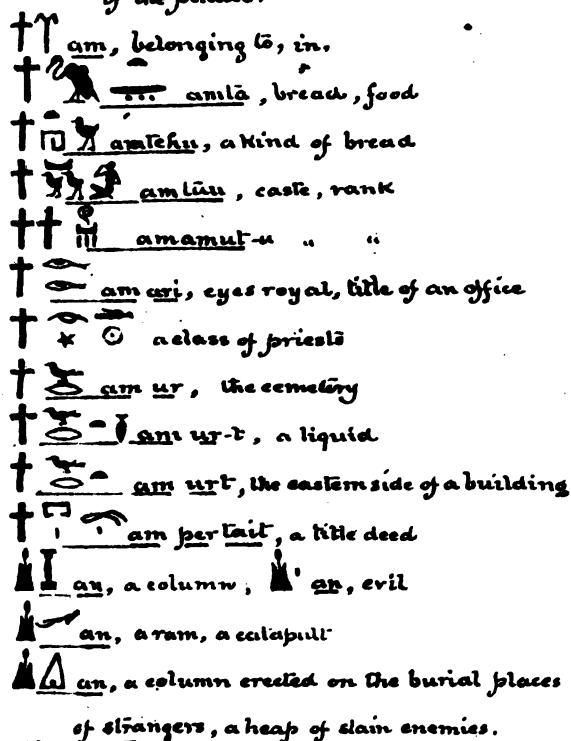 of the palace.
am, belonging to, in.
amtā, bread, food
amtehu, a kind of bread
amtūu, caste, rank
amamut-u " "
am ari, eyes royal, title of an office
a class of priests
am ur, the cemetery
am ur-t, a liquid
am urt, the eastern side of a building
am per tait, a title deed
an, a column, an, evil
an, a ram, a catapult
an, a column erected on the burial places
of strangers, a heap of slain enemies.